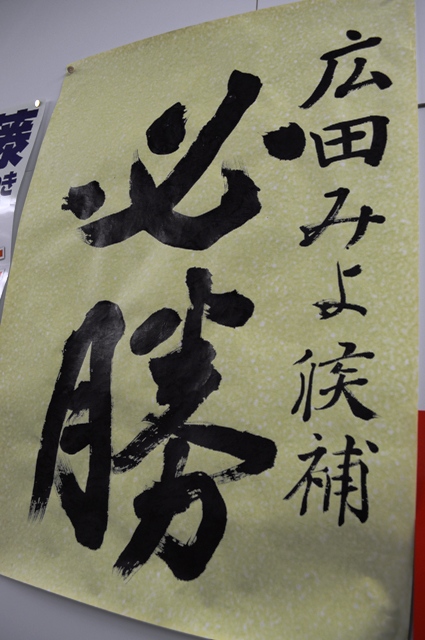 広田みよ候補
必勝
藤
き